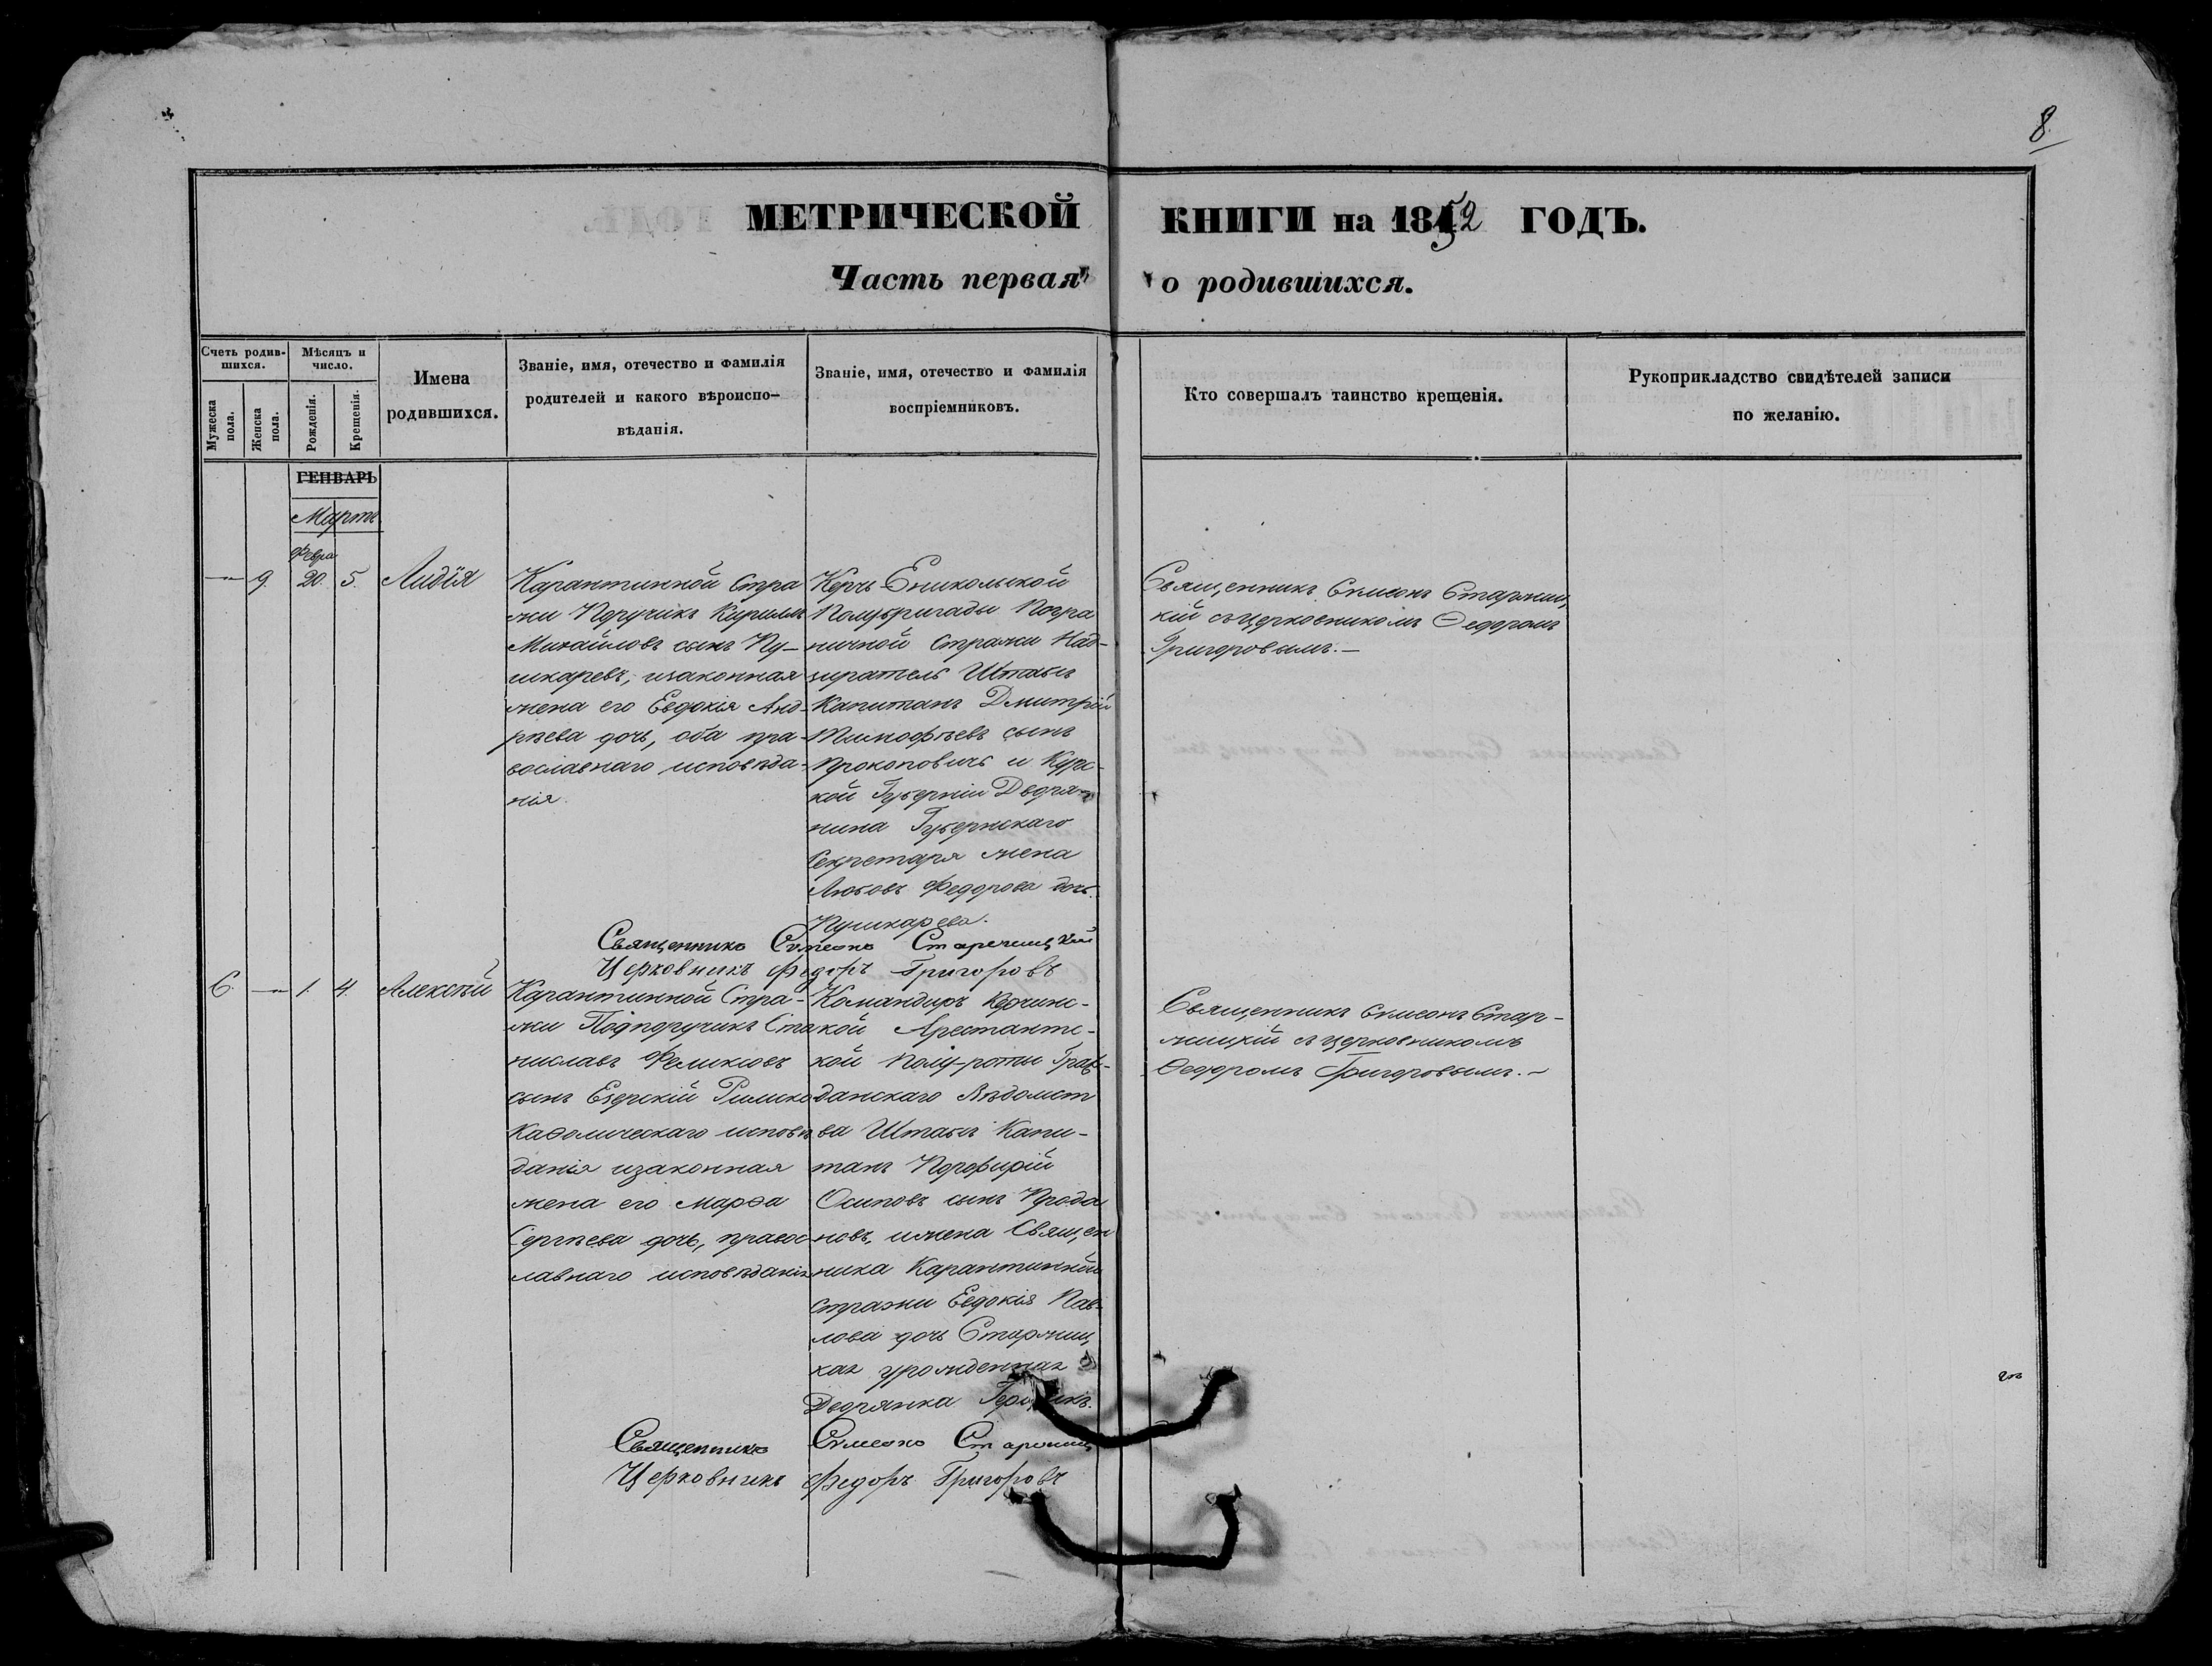 8.
МЕТРИЧЕСКОЙ КНИГИ на 1852 ГОДЪ.
Часть первая о родившихся.
Счетъ родив-
шихся.
Мужеска пола.
Женска пола.
Мѣсяцъ и число.
Рожденія.
Крещенія.
Имена
родившихся.
Званіе, имя, отечество и фамилія
родителей и какого вѣроиспо-
вѣданія.
Званіе, имя, отечество и фамилія
воспріемниковъ.
Кто совершалъ таинство крещенія.
Рукоприкладство свидѣтелей записи
по желанію.
ГЕНВАРЬ
Мартъ
Февра
— 9 20. 5. Лидія
Карантинной Стра
жи Поручикъ Кирилъ
Михайловъ сынъ Пу-
шкаревъ, изаконная
жена его Евдокія Анд-
рѣева дочь, оба пра-
вославнаго исповѣда-
нія.
Керчь Еникольской
Полубригады Погра
ничной Стражи Над-
зиратель Штабсъ
Капитанъ Дмитрій
Тимофѣевъ сынъ
Прокоповичъ и Курс-
кой Губерніи Дворя-
нина Губернскаго
Секретаря жена
Любовь Федорова дочь
Пушкарева.
Священникъ Сѵмеонъ Старжиц
кій съ Церковникомъ Ѳедоромъ
Григоровымъ.—
Священникъ Сѵмеонъ Старжицкій
Церковникъ Федоръ Григоровъ
6. — 1. 4. Алексѣй
Карантинной Стра-
жи Подпоручикъ Ста
ниславъ Феликсовъ
сынъ Езерскій Римско
Каѳолическаго исповѣ
данія изаконная
жена его Марѳа
Сергѣева дочь, правос
лавнаго исповѣданія
Командиръ Керчинс-
кой Арестантс-
кой Полу-роты Граж-
данскаго Вѣдомст
ва Штабсъ Капи-
танъ Порфирій
Осиповъ сынъ Прода
новъ, ижена Священ
ника Карантинной
Стражи Евдокія Пав-
лова дочь Старжиц
кая урожденная
Дворянка
Священникъ Сѵмеонъ Стар-
жицкій съ церковникомъ
Ѳедоромъ Григоровымъ.—
Священникъ Сѵмеонъ Старжиц
Церковникъ Федоръ Григоровъ